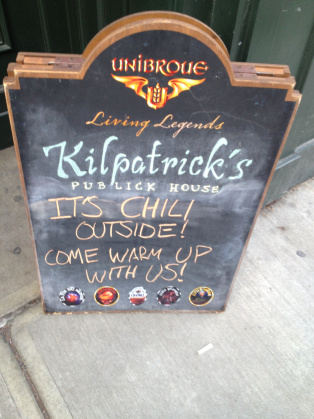 UNIBROUE
Living Legends
Kilpatrick's
PUBLICK HOUSE
IT'S CHILI
OUTSIDE!
COME WARM UP
WITH US!